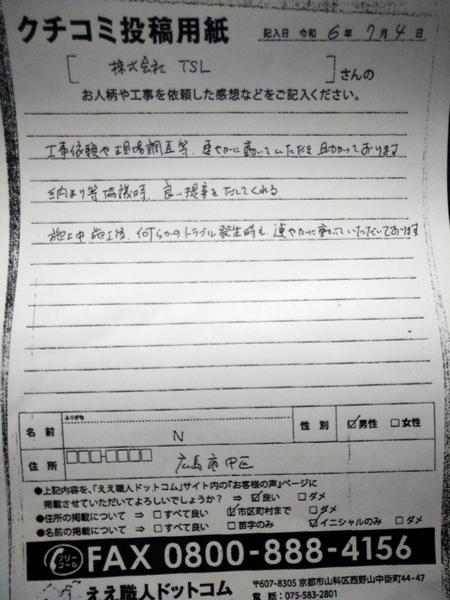 クチコミ投稿用紙
記入日 令和 6 年 7 月 4 日
[ 株式会社 TSL ] さんの
お人柄や工事を依頼した感想などをご記入ください。
工事依頼や現場調査等、速やかに動いていただき助かっております
納まり等協議時、良い提案をだしてくれる
施工中施工後、何らかのトラブル発生時も、速やかに動いていただいております
ふりがな
名前 N 性別 ☑男性 □女性
住所 □□□-□□□□ 広島市中区
●上記内容を、「ええ職人ドットコム」サイト内の「お客様の声」ページに
掲載させていただいてよろしいでしょうか? ⇒ ☑良い □ダメ
●住所の掲載について ⇒ □すべて良い ☑市区町村まで □ダメ
●名前の掲載について ⇒ □すべて良い □苗字のみ ☑イニシャルのみ □ダメ
フリーコール FAX 0800-888-4156
ええ職人ドットコム
〒607-8305 京都市山科区西野山中臣町44-47
電話:075-583-2801